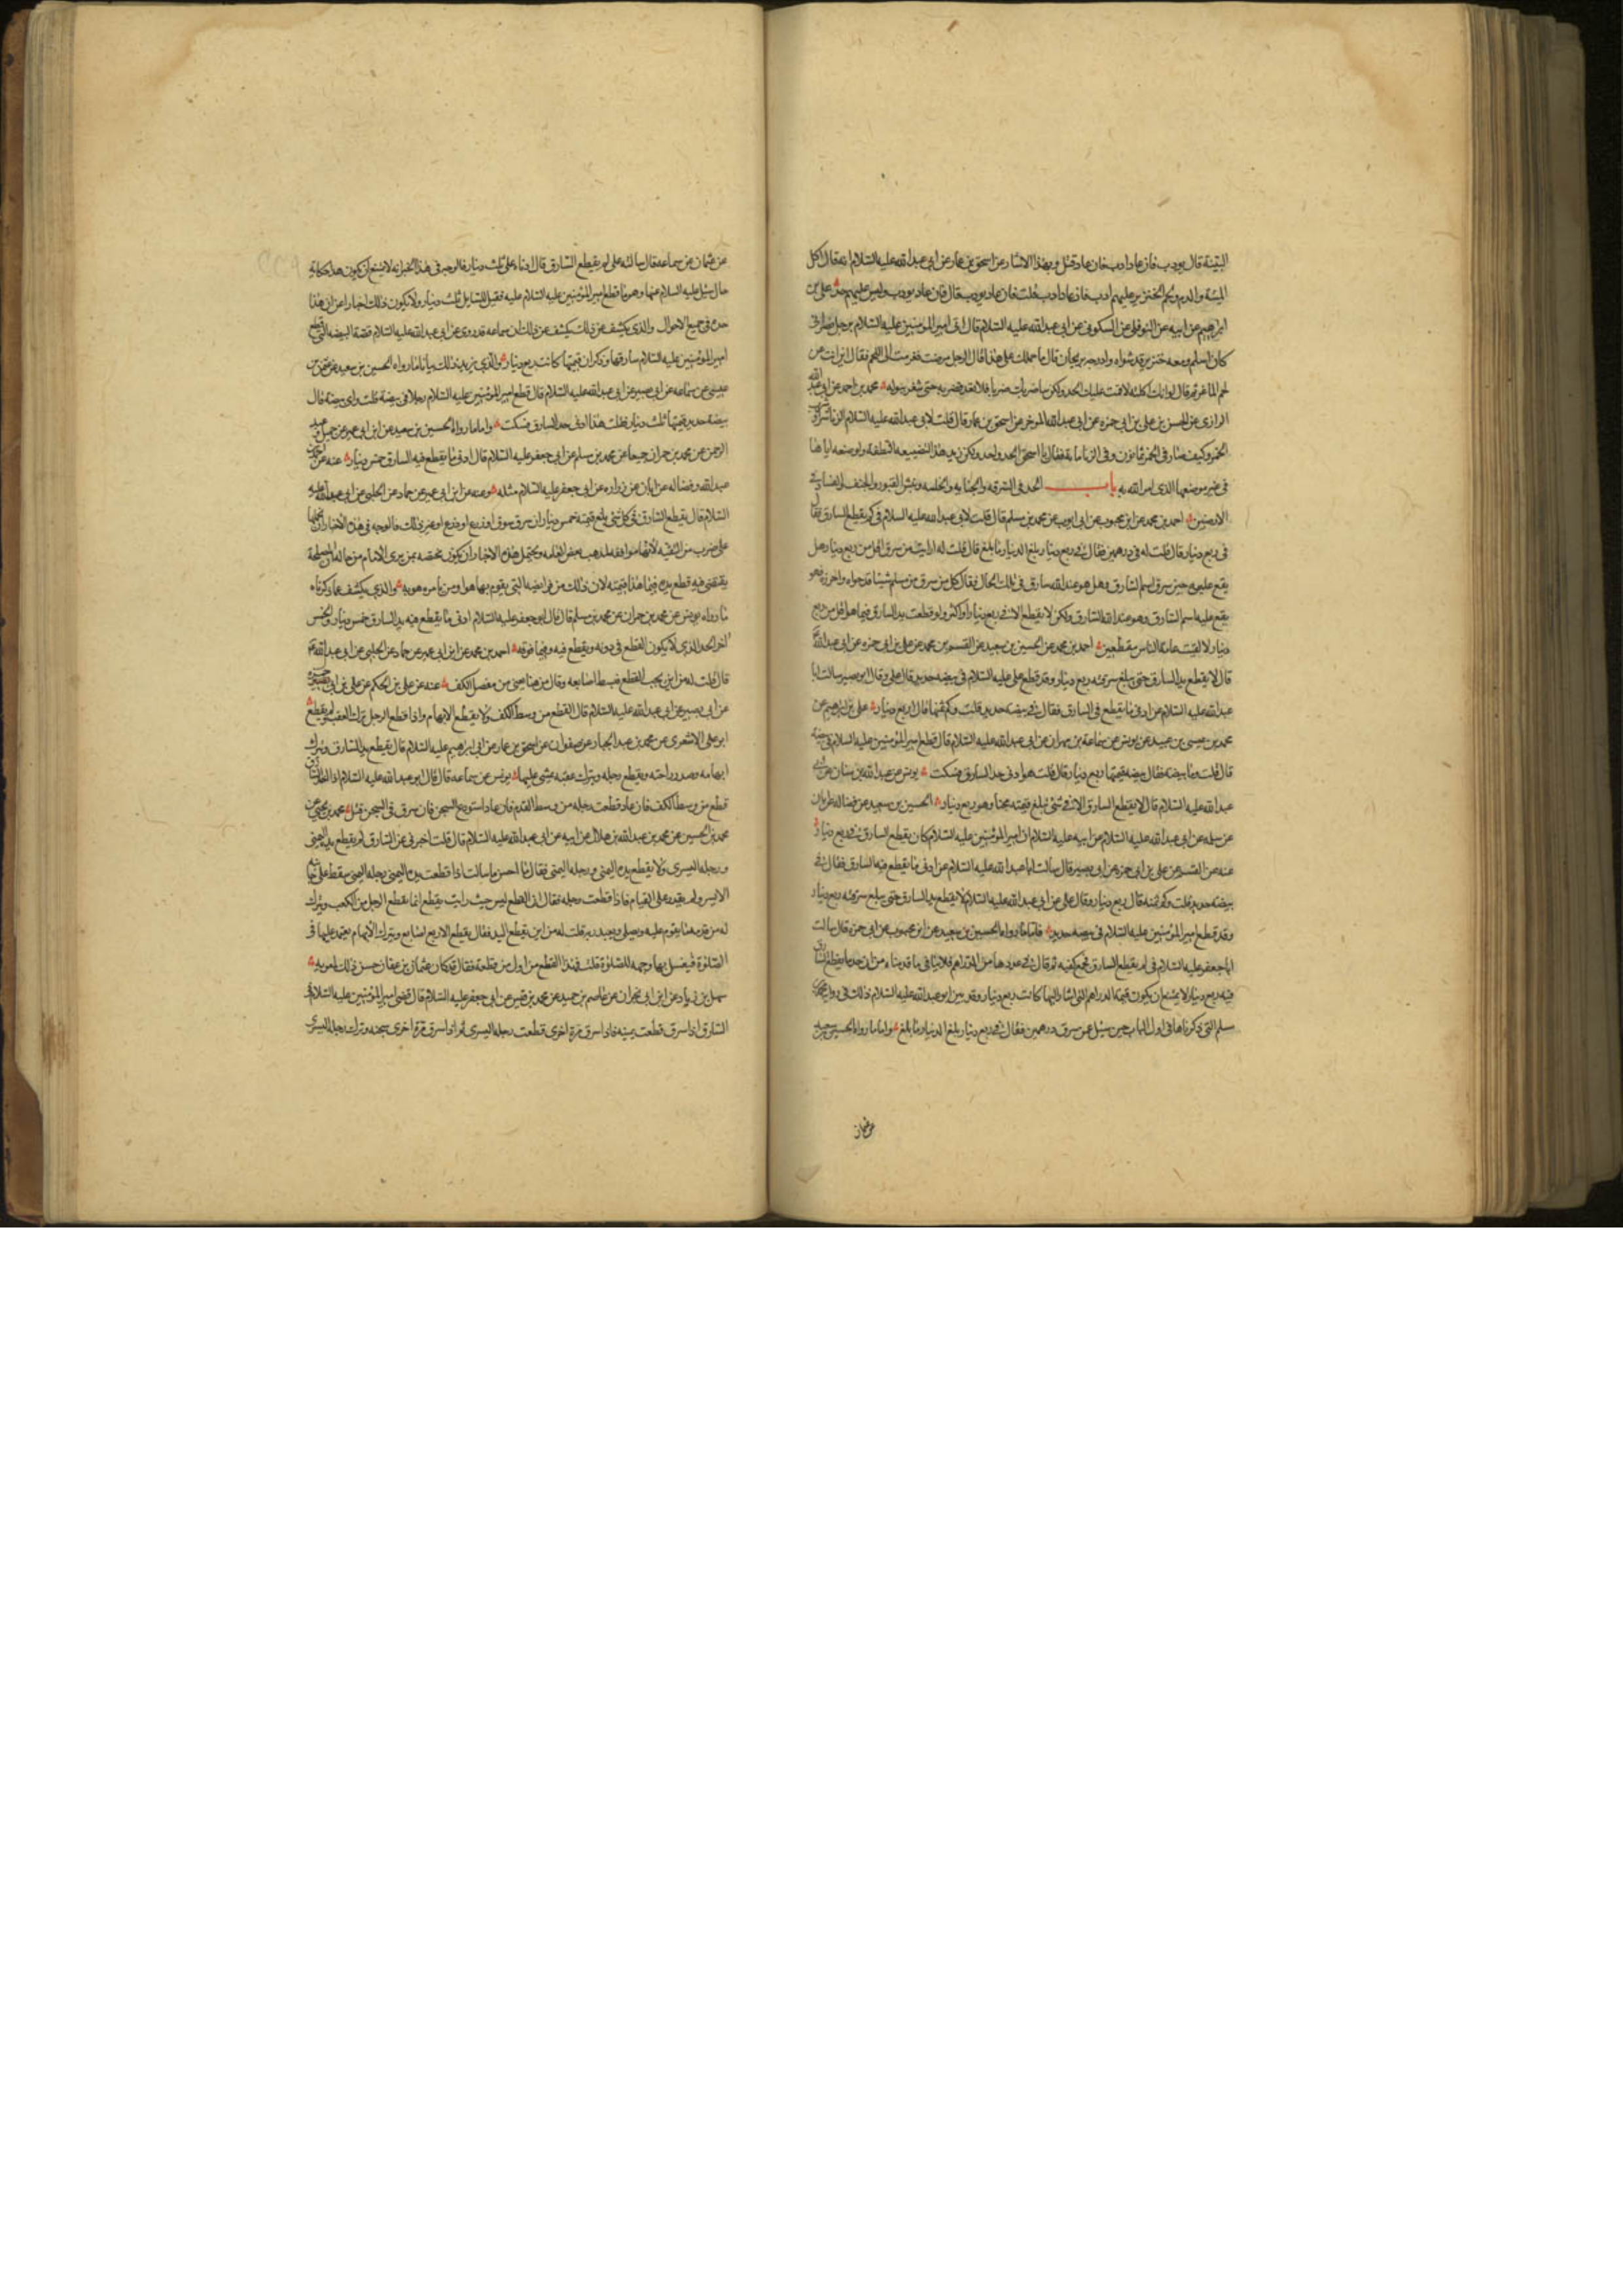 البينة قال يودب فان عاد ادب فان عاد قتل وبهذا الاسناد عن اسحق بن عمار عن ابي عبد الله عليه السلام انه قال اكل
الميتة والدم ولحم الخنزير عليهم ادب فان عاد ادب قلت فان عاد يودب قال فان عاد يودب وليس عليهم حد علي بن
ابراهيم عن ابيه عن النوفلي عن السكوني عن ابي عبد الله عليه السلام قال اتى امير المومنين عليه السلام برجل نصراني
كان اسلم ومعه خنزير قد شواه وادرجه بريحان قال ما حملك على هذا قال الرجل مرضت فقرمت الى اللحم فقال اين انت من
لحم الماعز ثم قال لو انك اكلته لاقمت عليك الحد ولكن ساضربك ضربا فلا تعد فضربه حتى شغر ببوله محمد بن احمد عن ابي عبد الله
الرازي عن الحسن بن علي بن ابي حمزه عن ابي عبد الله المومن عن اسحق بن عمار قال قلت لابي عبد الله عليه السلام الزنا شر او شرب
الخمر وكيف صار في الخمر ثمانون وفي الزنا ماية فقال يا اسحق الحد واحد ولكن زيد هذا لتضييعه النطفة ولوضعه اياها
في غير موضعها الذي امر الله به باب الحد في السرقه والخيانه والخلسه ونبش القبور والخنق والفساد في
الارضين احمد بن محمد عن ابن محبوب عن ابي ايوب عن محمد بن مسلم قال قلت لابي عبد الله عليه السلام في كم يقطع السارق فقال
في ربع دينار قال قلت له في درهمين فقال في ربع دينار بلغ الدينار ما بلغ قال قلت له ارايت من سرق اقل من ربع دينار هل
يقع عليه حين سرق اسم السارق وهل هو عند الله سارق في تلك الحال فقال كل من سرق من مسلم شيئا قد حواه واحرزه فهو
يقع عليه اسم السارق وهو عند الله السارق ولكن لا يقطع الا في ربع دينار او اكثر ولو قطعت يد السارق فيما هو اقل من ربع
دينار لالفيت عامة الناس مقطعين احمد بن محمد عن الحسين بن سعيد عن القسم بن محمد عن علي بن ابي حمزه عن ابي عبد الله
قال لا يقطع يد السارق حتى يبلغ سرقته ربع دينار وقد قطع علي عليه السلام في بيضه حديد قال علي وقال ابو بصير سالت ابا
عبد الله عليه السلام عن ادنى ما يقطع في السارق فقال في بيضة حديد قلت وكم ثمنها قال ربع دينار علي بن ابراهيم عن
محمد بن عيسى بن عبيد عن يونس عن سماعة بن مهران عن ابي عبد الله عليه السلام قال قطع امير المومنين عليه السلام في بيضة
قال قلت وما بيضه فقال بيضه قيمتها ربع دينار قال قلت هو ادنى حد السارق فسكت يونس عن عبد الله بن سنان عن ابي
عبد الله عليه السلام قال لا يقطع السارق الا في شئ تبلغ قيمته مجنا وهو ربع دينار الحسين بن سعيد عن فضاله عن ابان
عن سلمه عن ابي عبد الله عليه السلام عن ابيه عليه السلام ان امير المومنين عليه السلام كان يقطع السارق في ربع دينار
عنه عن القسم عن علي بن ابي حمزه عن ابي بصير قال سالت ابا عبد الله عليه السلام عن ادنى ما يقطع فيه السارق فقال في
بيضه حديد قلت وكم ثمنه قال ربع دينار وقال علي عن ابي عبد الله عليه السلام لا يقطع يد السارق حتى يبلغ سرقته ربع دينار
وقد قطع امير المومنين عليه السلام في بيضه حديد فاما ما رواه الحسين بن سعيد عن ابن محبوب عن ابي حمزه قال سالت
ابا جعفر عليه السلام في كم يقطع السارق فجمع كفيه ثم قال في عددها من الدراهم فلا ينافي ما قدمناه من ان حد ما يقطع السارق
فيه ربع دينار لانه لا يمتنع ان يكون قيمة الدراهم التي اشار اليها كانت ربع دينار وقد بين ابو عبد الله عليه السلام ذلك في رواية محمد بن
مسلم التي ذكرناها في اول الباب حين سئل عن سرق درهمين فقال في ربع دينار بلغ الدينار ما بلغ واما ما رواه الحسين بن سعيد
عن عثمان
عن عثمان عن سماعه قال سالته على كم يقطع السارق قال ادناه على ثلث دينار فالوجه في هذا الخبر انه لا يمتنع ان يكون هذا حكاية
حال سئل عليه السلام عنها وهو ما قطع امير المومنين عليه السلام عليه فقيل للسايل ثلث دينار ولا يكون ذلك اخبارا عن ان هذا
حده في جميع الاحوال والذي يكشف عن ذلك ان سماعه قد روى عن ابي عبد الله عليه السلام قصة البيضه التي قطع
امير المومنين عليه السلام سارقها وذكر ان قيمتها كانت ربع دينار والذي يزيد ذلك بيانا ما رواه الحسين بن سعيد عن عثمن بن
عيسى عن سماعه عن ابي بصير عن ابي عبد الله عليه السلام قال قطع امير المومنين عليه السلام رجلا في بيضة قلت واي بيضه قال
بيضة حديد قيمتها ثلث دينار فقلت هذا ادنى حد السارق فسكت واما ما رواه الحسين بن سعيد عن ابن ابي عمير عن جميل وعبد
الرحمن عن محمد بن حمران جميعا عن محمد بن مسلم عن ابي جعفر عليه السلام قال ادنى ما يقطع فيه السارق خمس دينار عنه عن
عبد الله وفضاله عن ابان عن زراره عن ابي جعفر عليه السلام مثله وعنه عن ابن ابي عمير عن حماد عن الحلبي عن ابي عبد الله عليه
السلام قال يقطع السارق في كل شئ بلغ قيمته خمس دينار ان سرق من سوق او زرع او ضرع او غير ذلك فالوجه في هذه الاخبار ان نحملها
على ضرب من التقيه لانها موافقه لمذهب بعض العامه ويحتمل هذه الاخبار ان يكون مختصه بمن يرى الامام من حاله ان المصلحة
يقتضى فيه قطع يده فيما هذا قيمته لان ذلك من فرايضه التي يقوم بها هو او من يامره هو به والذي يكشف عما ذكرناه
ما رواه يونس عن محمد بن حمران عن محمد بن مسلم قال قال ابو جعفر عليه السلام ادنى ما يقطع فيه يد السارق خمس دينار والخمس
اخر الحد الذي لا يكون القطع في دونه ويقطع فيه وفيما فوقه احمد بن محمد عن ابن ابي عمير عن حماد عن الحلبي عن ابي عبد الله
قال قلت له من اين يجب القطع فبسط اصابعه وقال من هاهنا يعني من مفصل الكف عنه عن علي بن الحكم عن علي بن ابي حمزه
عن ابي بصير عن ابي عبد الله عليه السلام قال القطع من وسط الكف ولا يقطع الابهام واذا قطع الرجل ترك العقب لم يقطع
ابو علي الاشعري عن محمد بن عبد الجبار عن صفوان عن اسحق بن عمار عن ابي ابراهيم عليه السلام قال يقطع يد السارق ويترك
ابهامه وصدر راحته ويقطع رجله ويترك عقبه يمشي عليها يونس عن سماعه قال قال ابو عبد الله عليه السلام اذا اخذ السارق
قطع من وسط الكف فان عاد قطعت رجله من وسط القدم فان عاد استودع السجن فان سرق في السجن قتل محمد بن يحيى عن
محمد بن الحسين عن محمد بن عبد الله بن هلال عن ابيه عن ابي عبد الله عليه السلام قال قلت اخبرني عن السارق لم يقطع يده اليمنى
ورجله اليسرى ولا يقطع يده اليمنى ورجله اليمنى فقال ما احسن ما سالت اذا قطعت يده اليمنى ورجله اليمنى سقط على جانبه
الايسر ولم يقدر على القيام فاذا قطعت رجله فقال ان القطع ليس حيث رايت يقطع انما يقطع الرجل من الكعب ويترك
له من قدمه ما يقوم عليه ويصلي ويعبد ربه قلت له من اين يقطع اليد فقال يقطع الاربع اصابع ويترك الابهام يعتمد عليها في
الصلوة فيغسل بها وجهه للصلوة قلت فهذا القطع من اول من قطعه فقال قد كان عثمان بن عفان حسن ذلك لمعويه
سهل بن زياد عن ابن ابي نجران عن عاصم بن حميد عن محمد بن قيس عن ابي جعفر عليه السلام قال قضى امير المومنين عليه السلام في
السارق اذا سرق قطعت يمينه فاذا سرق مرة اخرى قطعت رجله اليسرى ثم اذا سرق مرة اخرى سجنه وتركت رجله اليمنى